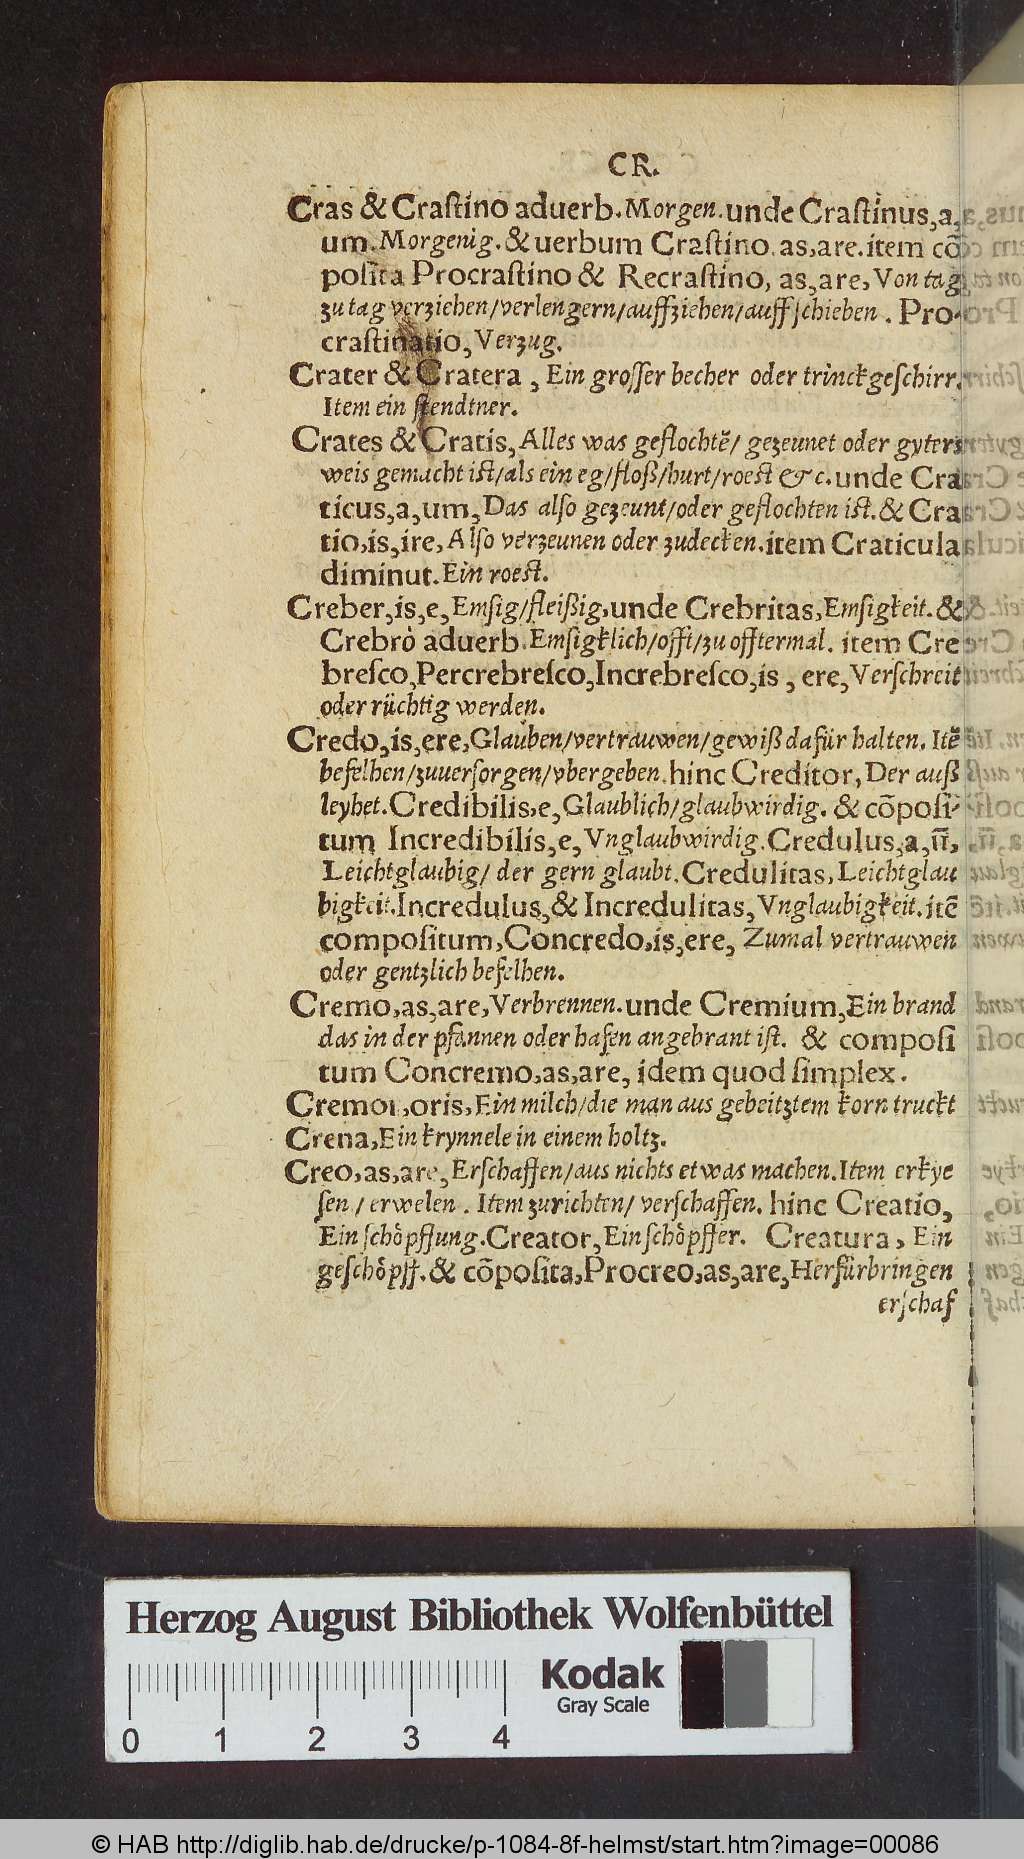 CR.
Cras & Craſtino aduerb. Morgen. unde Craſtinus, a,
um. Morgenig. & uerbum Craſtino, as, are. item cō
poſita Procraſtino & Recraſtino, as, are, Von tag
zu tag verziehen/verlengern/auffziehen/auffſchieben. Pro-
craſtinatio, Verzug.
Crater & Cratera, Ein groſſer becher oder trinckgeſchirr.
Item ein ſtendtner.
Crates & Cratis, Alles was geflochtē/ gezeunet oder gyters
weis gemacht iſt/als ein eg/floß/hurt/roeſt &c. unde Cra
ticus, a, um, Das alſo gezeunt/oder geflochten iſt. & Cra
tio, is, ire, Alſo verzeunen oder zudecken. item Craticula
diminut. Ein roeſt.
Creber, is, e, Emſig/fleißig, unde Crebritas, Emſigkeit. &
Crebrò aduerb. Emſigklich/offt/zu offtermal. item Cre
breſco, Percrebreſco, Increbreſco, is, ere, Verſchreit
oder rüchtig werden.
Credo, is, ere, Glauben/vertrauwen/gewiß dafür halten. Itē
befelhen/zuuerſorgen/vbergeben. hinc Creditor, Der auß
leyhet. Credibilis, e, Glaublich/glaubwirdig. & cōpoſi-
tum Incredibilis, e, Vnglaubwirdig. Credulus, a, ū,
Leichtglaubig/ der gern glaubt. Credulitas, Leichtglau
bigkeit. Incredulus, & Incredulitas, Vnglaubigkeit. itē
compoſitum, Concredo, is, ere, Zumal vertrauwen
oder gentzlich befelhen.
Cremo, as, are, Verbrennen. unde Cremium, Ein brand
das in der pfannen oder hafen angebrant iſt. & compoſi
tum Concremo, as, are, idem quod ſimplex.
Cremor, oris, Ein milch/die man aus gebeitztem korn truckt
Crena, Ein krynnele in einem holtz.
Creo, as, are, Erſchaffen/aus nichts etwas machen. Item erkye
ſen/erwelen. Item zurichten/ verſchaffen. hinc Creatio,
Ein ſchöpffung. Creator, Ein ſchöpffer. Creatura, Ein
geſchöpff. & cōpoſita, Procreo, as, are, Herfürbringen
erſchaf
Herzog August Bibliothek Wolfenbüttel
Kodak
Gray Scale
0 1 2 3 4
© HAB http://diglib.hab.de/drucke/p-1084-8f-helmst/start.htm?image=00086